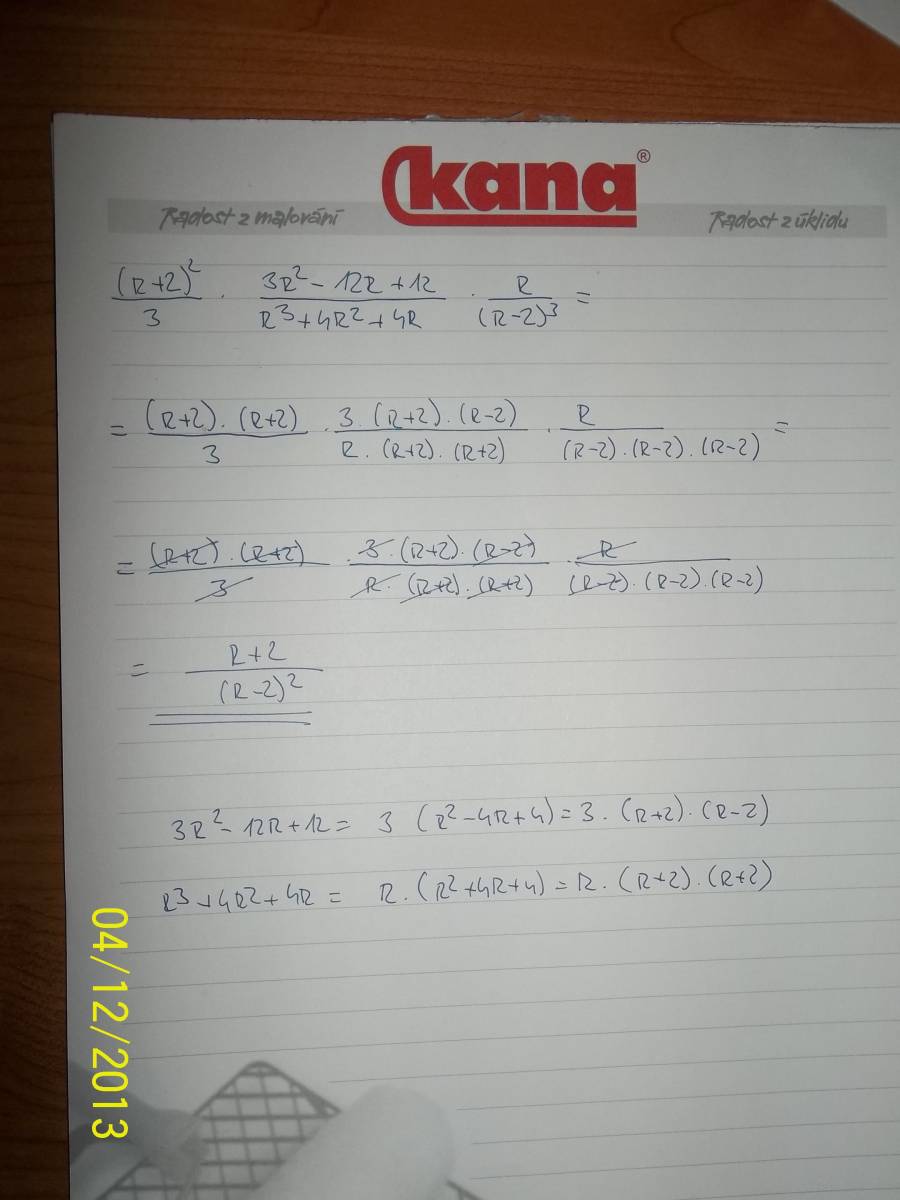 kana®
Radost z malování Radost z úklidu
(R+2)²/3 · (3R²-12R+12)/(R³+4R²+4R) · R/(R-2)³ =
= (R+2)·(R+2)/3 · 3·(R+2)·(R-2)/R·(R+2)·(R+2) · R/(R-2)·(R-2)·(R-2) =
= (R+2)·(R+2)/3 · 3·(R+2)·(R-2)/R·(R+2)·(R+2) · R/(R-2)·(R-2)·(R-2)
= R+2/(R-2)²
3R²-12R+12 = 3 (R²-4R+4) = 3·(R+2)·(R-2)
R³+4R²+4R = R·(R²+4R+4) = R·(R+2)·(R+2)
04/12/2013